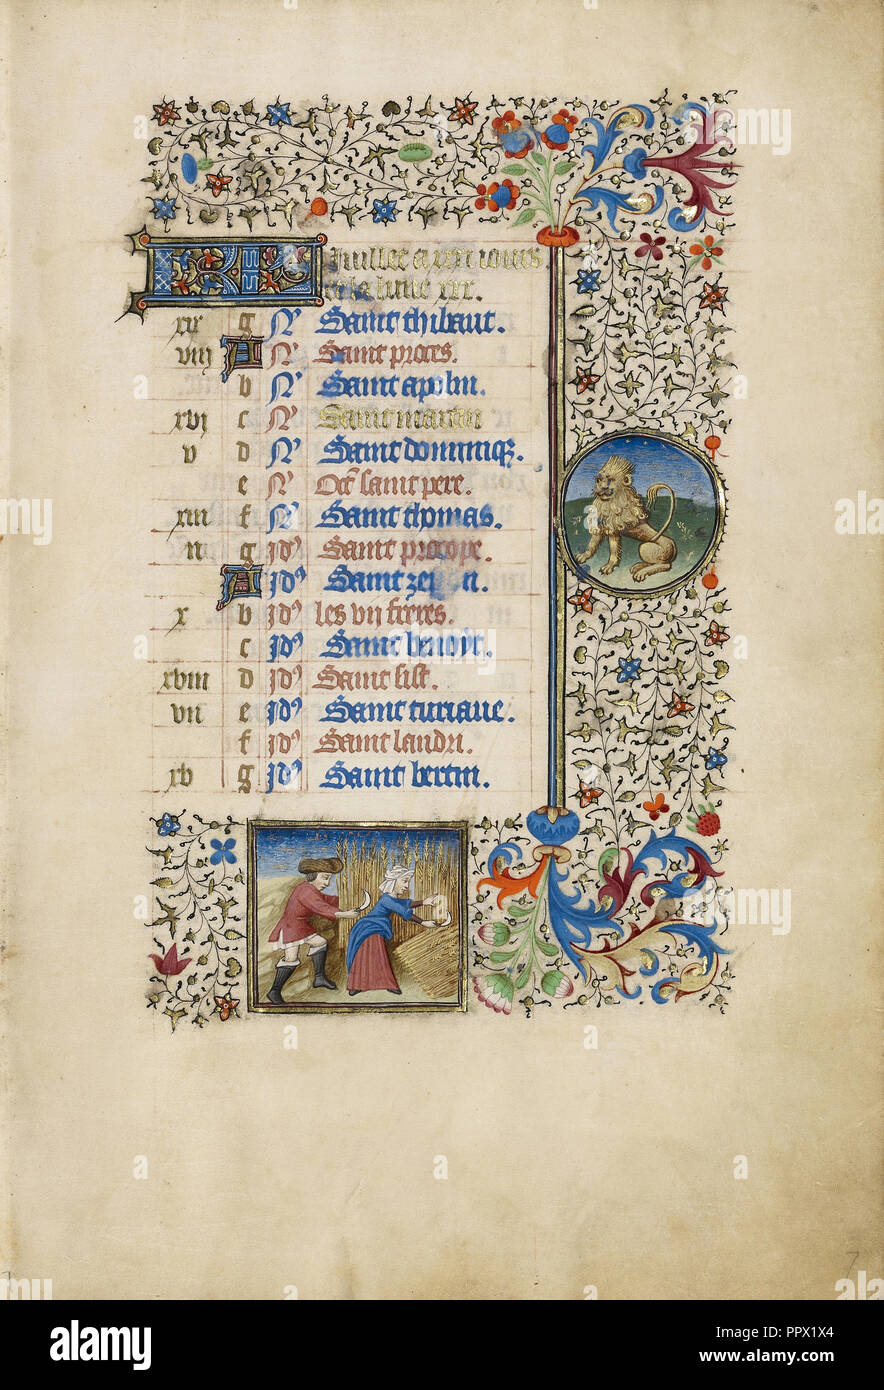 KL Juillet a xxxi iours
et la lune xxx.
xix g N Saint thibaut.
viii A N Saint proces.
b N Saint apolin.
xvi c N Saint martin
v d N Saint dominiq.
e N Oct saint pere.
xiii f N Saint thomas.
ii g id Saint procope.
A id Saint zenon.
x b id les vii freres.
c id Saint benoyt.
xviii d id Saint sist.
vii e id Saint turiaue.
f id Saint landri.
xv g id Saint bertin.
7
alamy
a
alamy
Image ID: PPX1X4
www.alamy.com